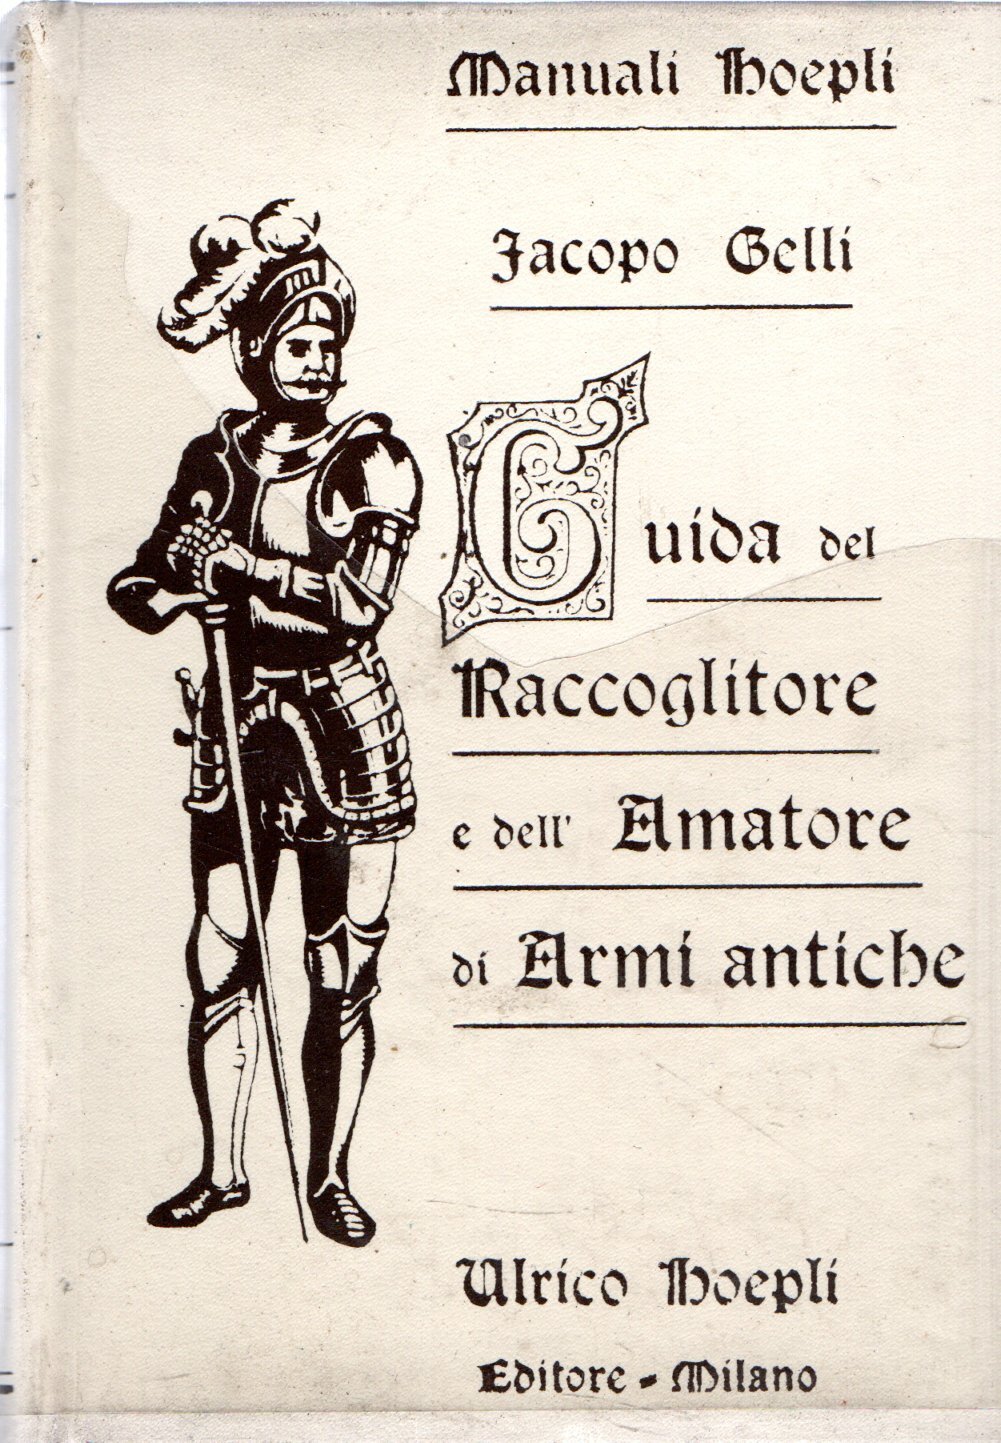 Manuali Hoepli
Jacopo Gelli
Guida del
Raccoglitore
e dell' Amatore
di Armi antiche
Ulrico Hoepli
Editore - Milano